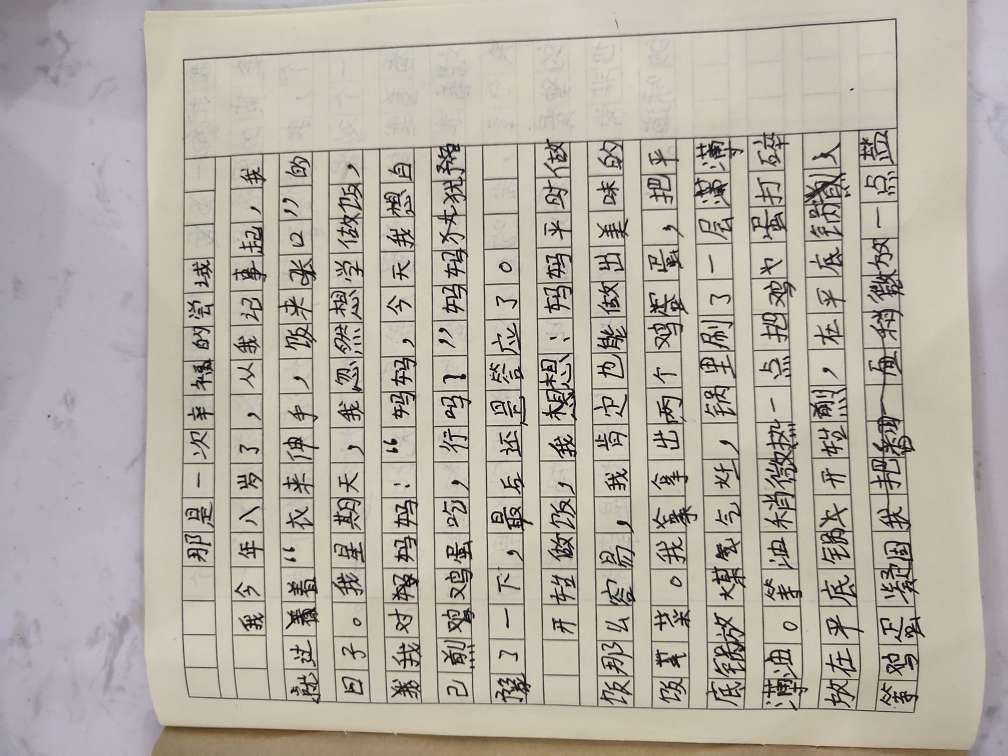 那是一次幸福的尝域
我今年八岁了，从我记事起，我
就过着“衣来伸手，饭来张口”的
日子。我星期天，我忽然想学做饭，
我对妈妈：“妈妈，今天我想自
己煎鸡蛋吃，行吗？”妈妈犹
豫了一下，最后还是答应了。
开始做饭，我想：妈妈平时做
饭那么容易，我肯定也能做出美味的
饭菜。我拿出两个鸡蛋，把平
底锅放煤气灶，锅里刷了一层薄
薄油。等油稍微热一点把鸡蛋打碎
放在平底锅开始煎，在平底锅煎
等鸡蛋凝固我把一面稍微放一点盐